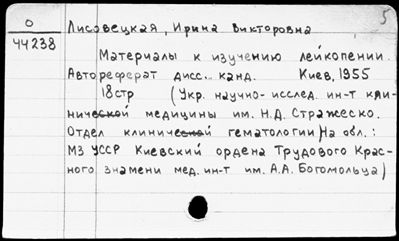 5
О Лисовецкая, Ирина Викторовна
44238
Материалы к изучению лейкопении.
Автореферат дисс. канд. Киев, 1955
18стр (Укр. научно-исслед. ин-т кли-
нической медицины им. Н.Д. Стражеско.
Отдел клинической гематологии) На обл.:
МЗ УССР Киевский ордена Трудового Крас-
ного знамени мед. ин-т им. А.А. Богомольца)